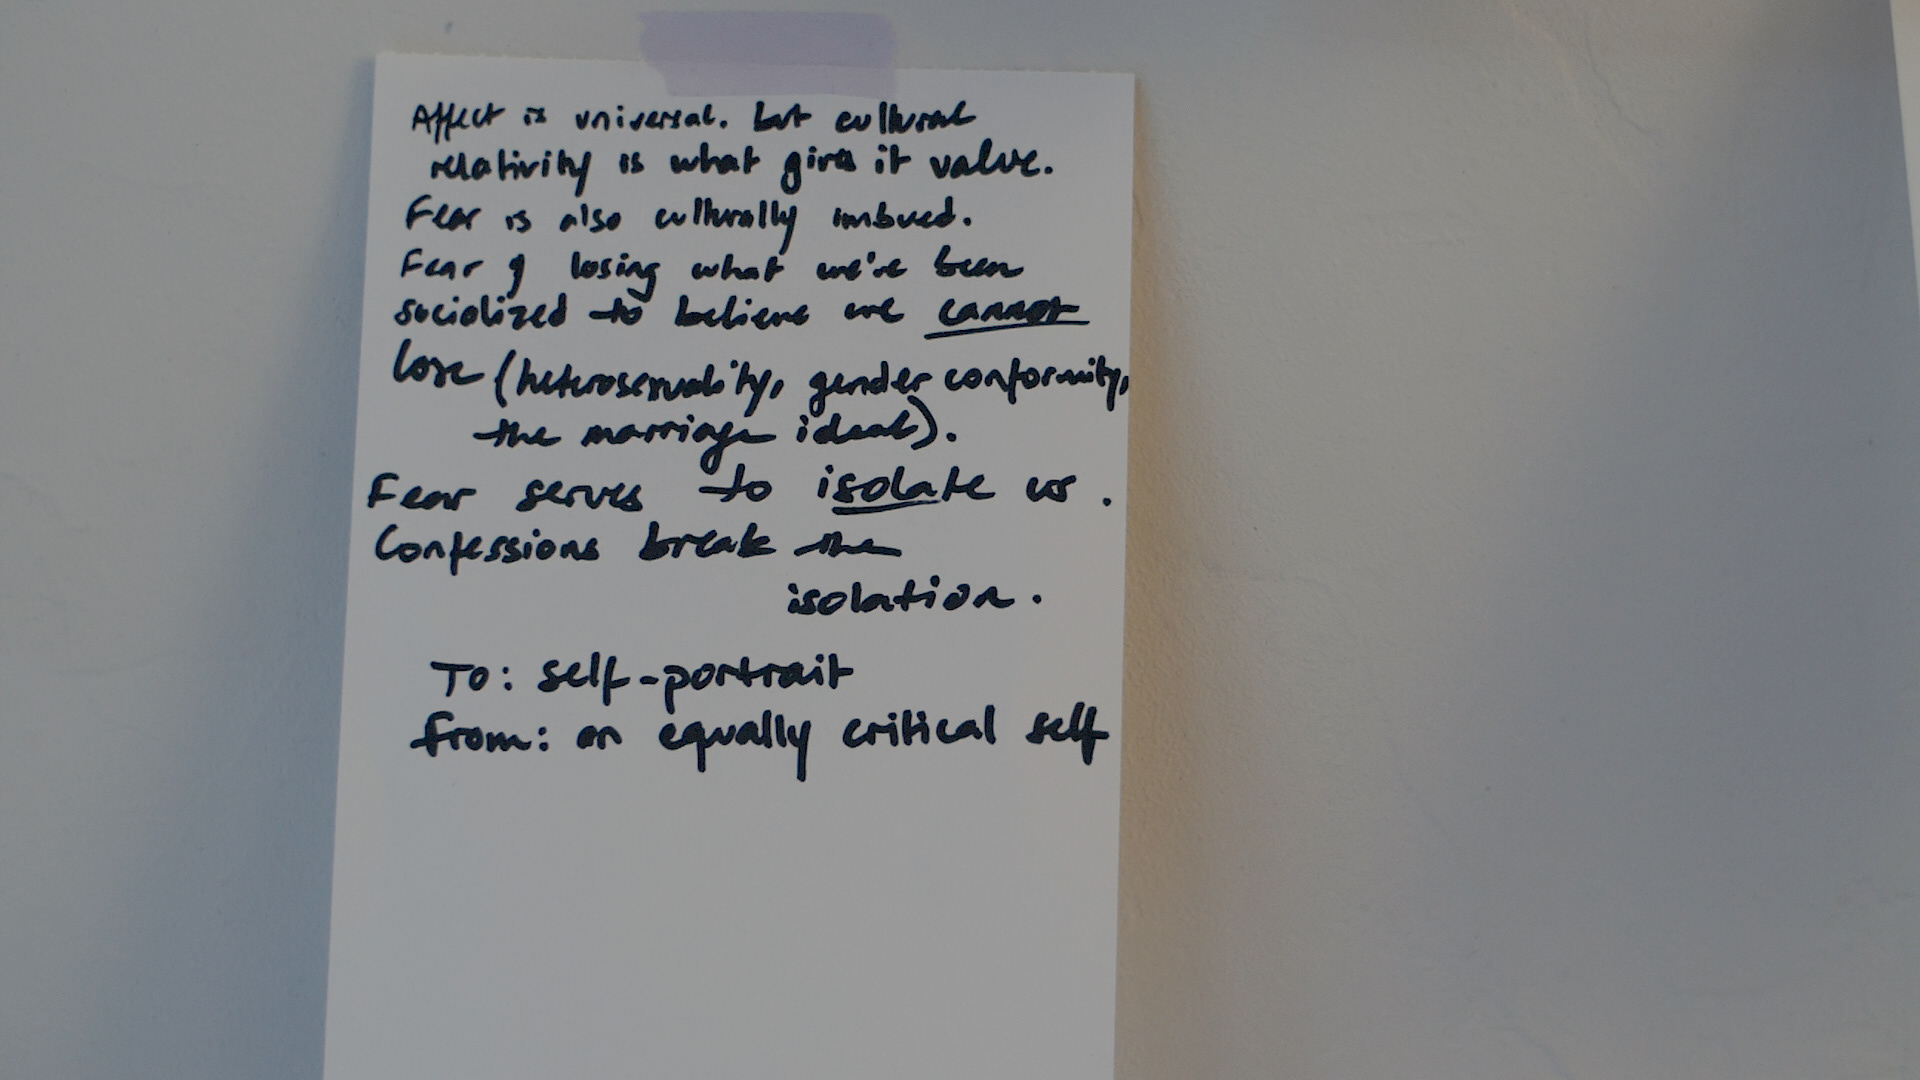 Affect is universal. but cultural
relativity is what gives it value.
Fear is also culturally imbued.
Fear of losing what we've been
socialized to believe we cannot
lose (heterosexuality, gender conformity,
the marriage ideal).
Fear serves to isolate us.
Confessions break the
isolation.
To: self-portrait
from: an equally critical self